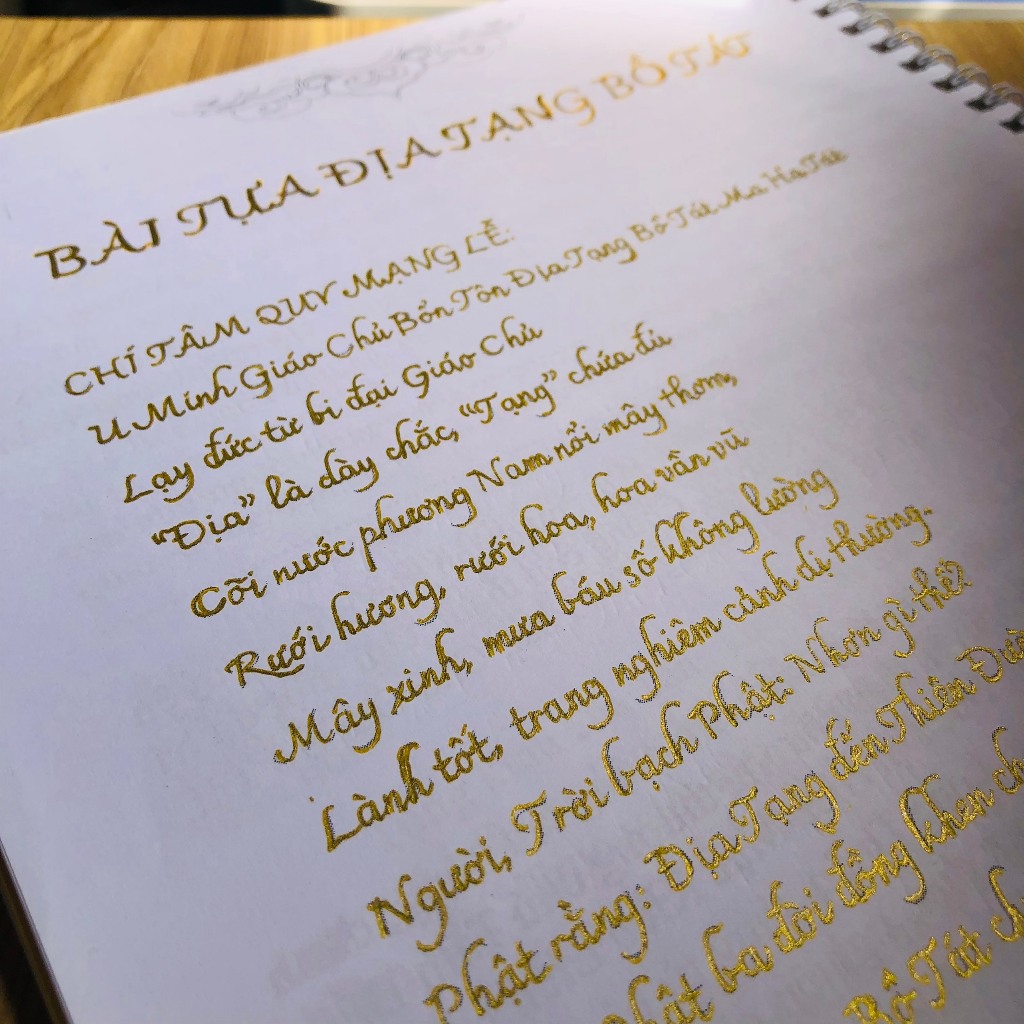 BÀI TỰA ĐỊA TẠNG BỒ TÁT
CHÍ TÂM QUY MẠNG LỄ:
U Minh Giáo Chủ Bổn Tôn Địa Tạng Bồ Tát Ma Ha Tát
Lạy đức từ bi đại Giáo Chủ
“Địa” là dày chắc, “Tạng” chứa đủ
Cõi nước phương Nam nổi mây thơm,
Rưới hương, rưới hoa, hoa vần vũ
Mây xinh, mưa báu số không lường
Lành tốt, trang nghiêm cảnh dị thường.
Người, Trời bạch Phật: Nhơn gì thế?
Phật rằng: Địa Tạng đến Thiên
ba đời đồng khen
Bồ Tát